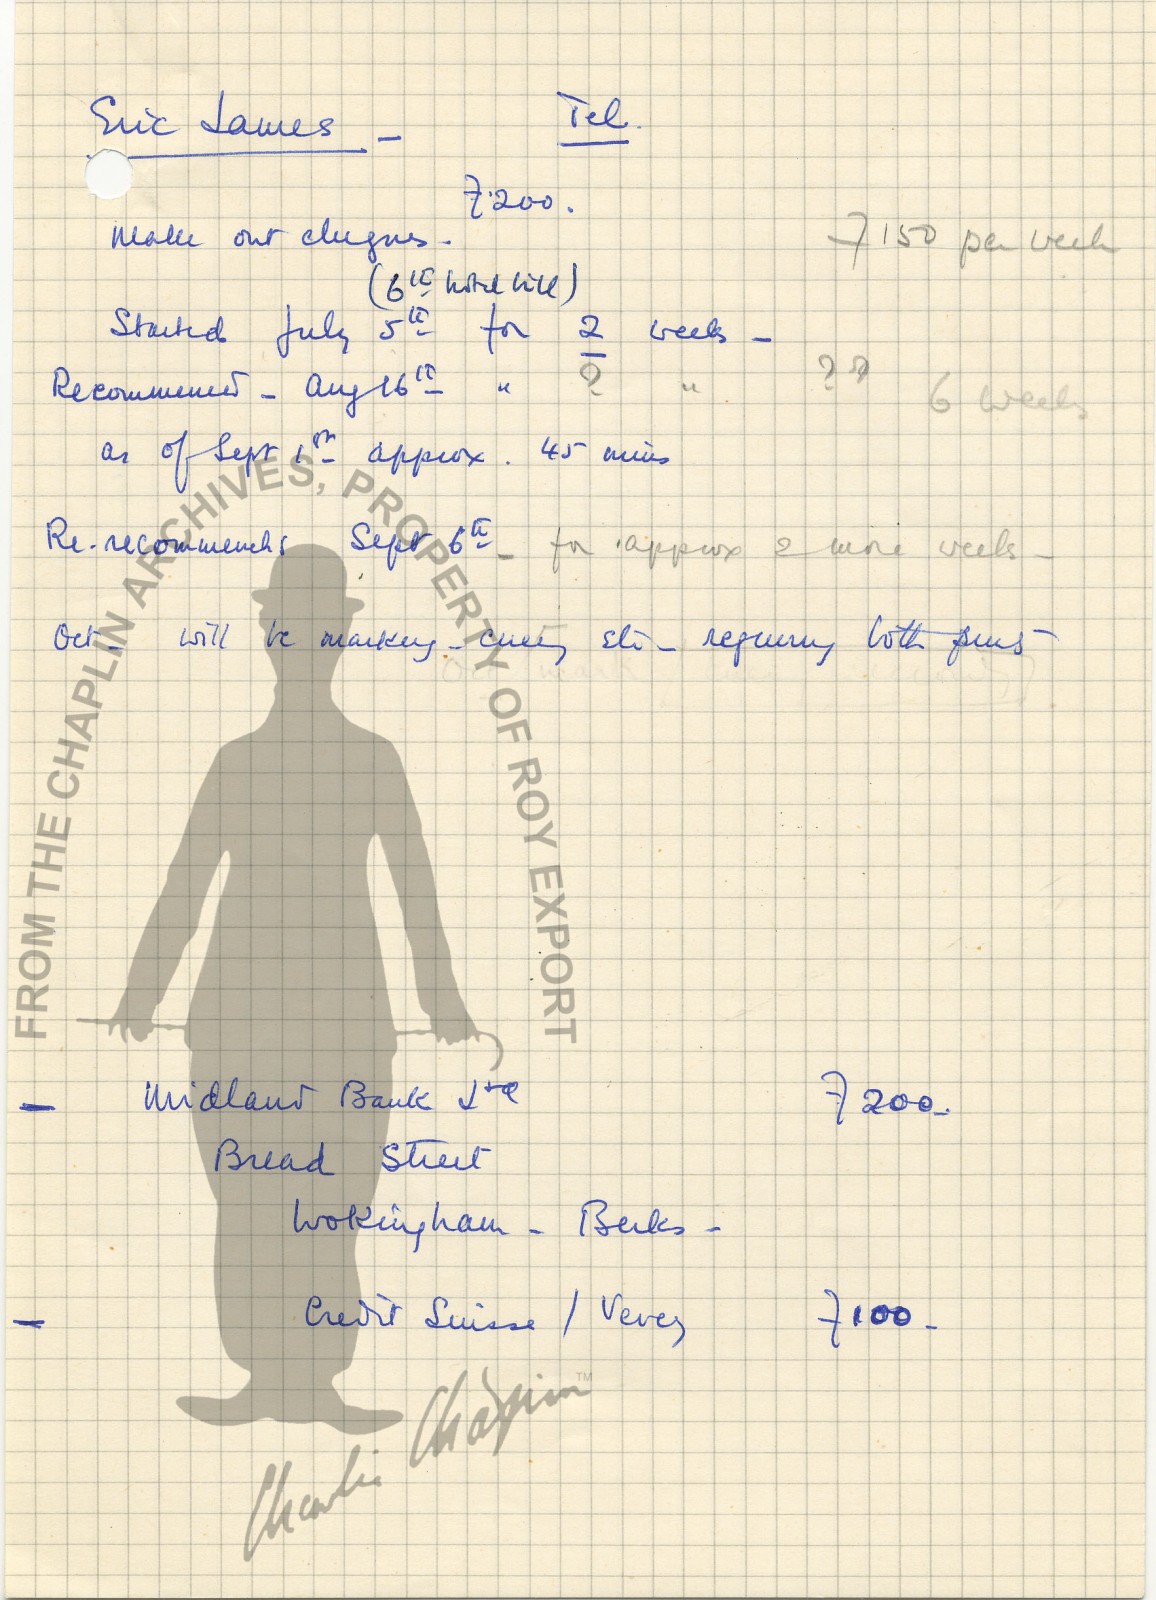 Eric James - Tel.
£200.
Make out cheques - £150 per week
(6th hotel bill)
Started July 5th for 2 weeks -
Recommenced - Aug 16th " ? " ?? 6 weeks
as of Sept 1st approx. 45 mins
Re-recommences Sept 6th - for approx 2 more weeks -
Oct - will be marking - cueing etc - requiring both
Midland Bank Ltd £200 -
Bread Street
Wokingham - Berks -
Credit Suisse / Vevey £100 -
FROM THE CHAPLIN ARCHIVES, PROPERTY OF ROY EXPORT
Charlie Chaplin TM